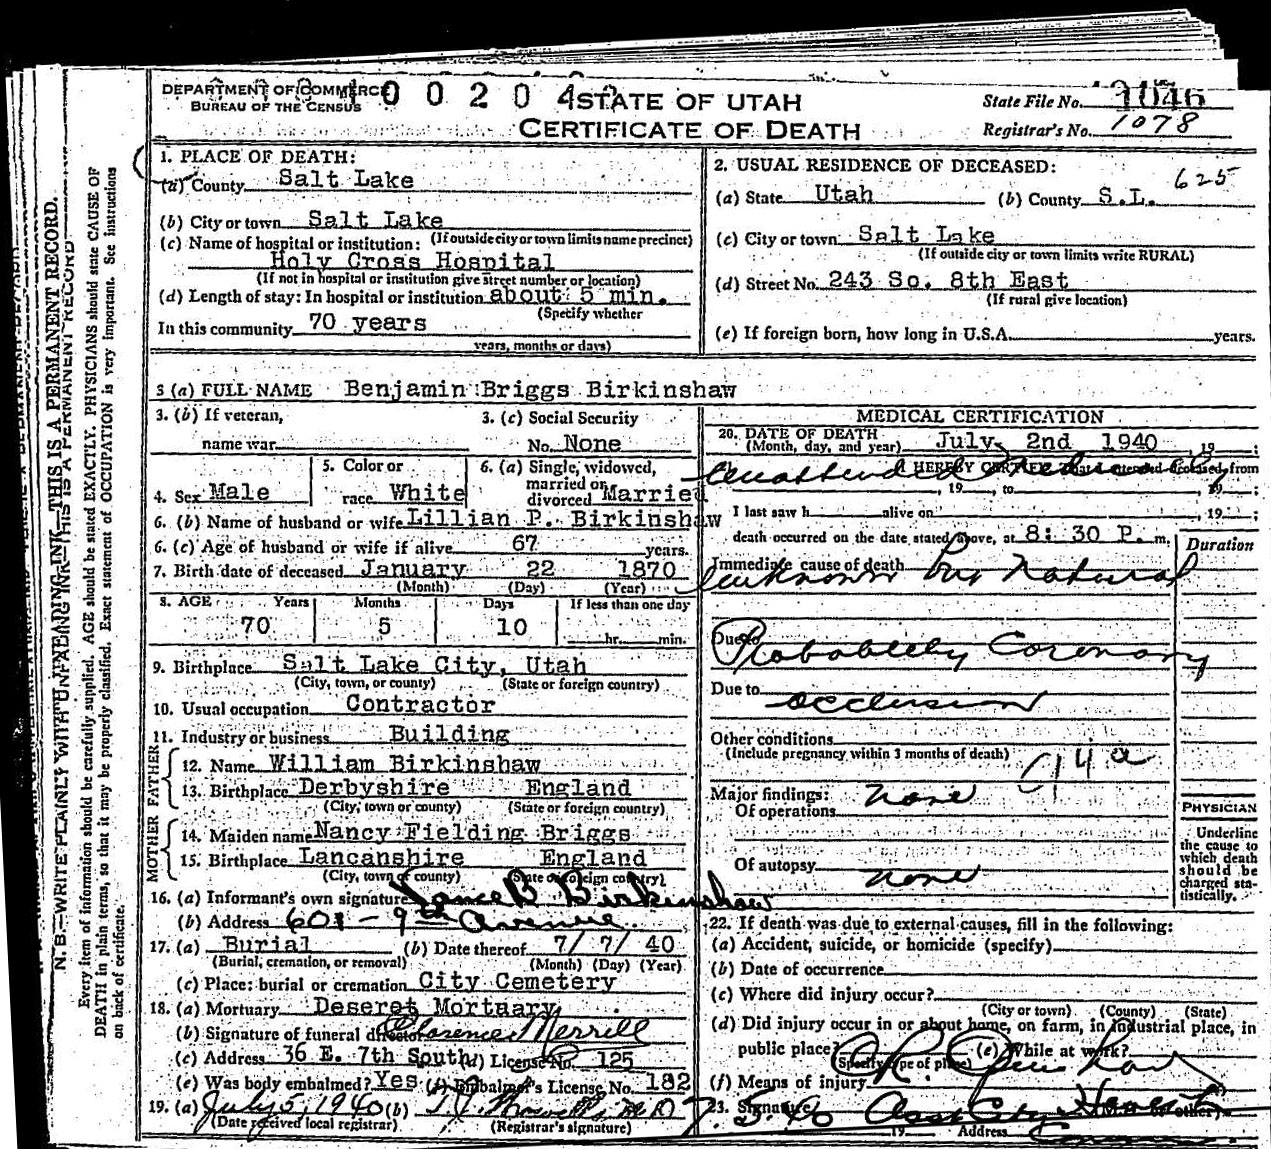 DEPARTMENT OF COMMERCE
BUREAU OF THE CENSUS
1 0 0 2 0 4
STATE OF UTAH
CERTIFICATE OF DEATH
State File No. 1046
Registrar's No. 1078
N. B.—WRITE PLAINLY WITH UNFADING INK—THIS IS A PERMANENT RECORD.
Every item of information should be carefully supplied. AGE should be stated EXACTLY. PHYSICIANS should state CAUSE OF
DEATH in plain terms, so that it may be properly classified. Exact statement of OCCUPATION is very important. See Instructions
on back of certificate.
1. PLACE OF DEATH:
(a) County Salt Lake
(b) City or town Salt Lake
(If outside city or town limits name precinct)
(c) Name of hospital or institution:
Holy Cross Hospital
(If not in hospital or institution give street number or location)
(d) Length of stay: In hospital or institution about 5 min.
(Specify whether
In this community 70 years
years, months or days)
2. USUAL RESIDENCE OF DECEASED:
625
(a) State Utah (b) County S.L.
(c) City or town Salt Lake
(If outside city or town limits write RURAL)
(d) Street No. 243 So. 8th East
(If rural give location)
(e) If foreign born, how long in U.S.A. years.
3 (a) FULL NAME Benjamin Briggs Birkinshaw
3. (b) If veteran,
name war
3. (c) Social Security
No. None
4. Sex Male
5. Color or
race White
6. (a) Single, widowed,
married or
divorced Married
6. (b) Name of husband or wife Lillian P. Birkinshaw
6. (c) Age of husband or wife if alive 67 years.
7. Birth date of deceased January 22 1870
(Month) (Day) (Year)
8. AGE Years Months Days If less than one day
70 5 10 hr. min.
9. Birthplace Salt Lake City, Utah
(City, town, or county) (State or foreign country)
10. Usual occupation Contractor
11. Industry or business Building
FATHER
12. Name William Birkinshaw
13. Birthplace Derbyshire England
(City, town or county) (State or foreign country)
MOTHER
14. Maiden name Nancy Fielding Briggs
15. Birthplace Lancanshire England
(City, town or county) (State or foreign country)
16. (a) Informant's own signature Vance B Birkinshaw
(b) Address 601 - 9th Avenue
17. (a) Burial (b) Date thereof 7/ 7/ 40
(Burial, cremation, or removal) (Month) (Day) (Year)
(c) Place: burial or cremation City Cemetery
18. (a) Mortuary Deseret Mortuary
(b) Signature of funeral director Clarence Merrill
(c) Address 36 E. 7th South (d) License No. 125
(e) Was body embalmed? Yes (f) Embalmer's License No. 182
19. (a) July 5, 1940 (b)
(Date received local registrar) (Registrar's signature)
MEDICAL CERTIFICATION
20. DATE OF DEATH
(Month, day, and year) July 2nd 1940 19 ;
I HEREBY CERTIFY that I attended deceased from
, 19 , to , 19 ;
I last saw h alive on , 19 ;
death occurred on the date stated above, at 8: 30 P. m.
Duration
Immediate cause of death
unknown but natural
Due to
Probablely Coronary
Due to
occlusion
Other conditions
(Include pregnancy within 3 months of death)
94a
Major findings:
Of operations none
Of autopsy none
PHYSICIAN
Underline
the cause to
which death
should be
charged sta-
tistically.
22. If death was due to external causes, fill in the following:
(a) Accident, suicide, or homicide (specify)
(b) Date of occurrence
(c) Where did injury occur?
(City or town) (County) (State)
(d) Did injury occur in or about home, on farm, in industrial place, in
public place? (e) While at work?
(Specify type of place)
(f) Means of injury
23. Signature
19 Address